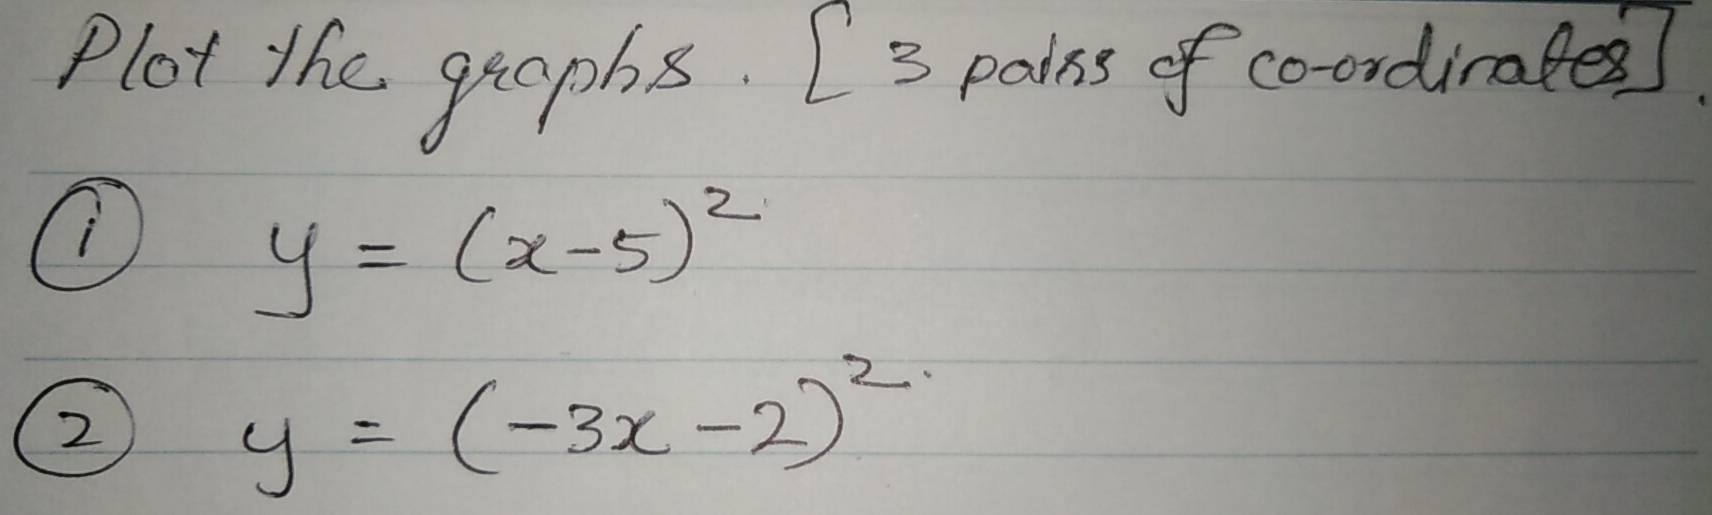 Plot the graphs. [3 pairs of co-ordinates].
① y = (x-5)²
② y = (-3x-2)².